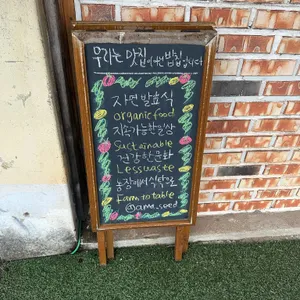 우리는 맛집이전 밥집입니다
자연발효식
organic food
지속가능한 일상
Sustainable
건강한 문화
Less waste
농장에서 식탁으로
Farm to table
@ama_seed